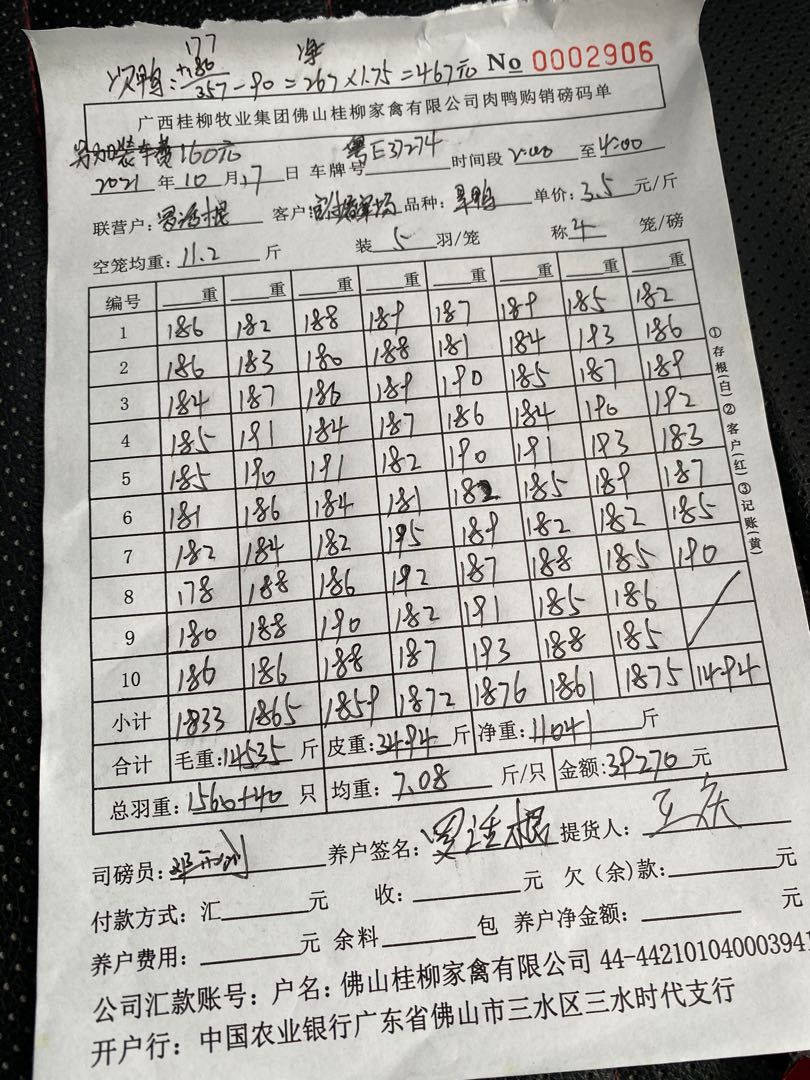 177
次鸭: +180 净
357-90=267×1.75=467元 No 0002906
广西桂柳牧业集团佛山桂柳家禽有限公司肉鸭购销磅码单
另加装车费160元
2021年10月17日 车牌号粤E37274 时间段2:00至4:00
联营户: 客户: 品种: 单价:3.5元/斤
空笼均重:11.2斤 装5羽/笼 称4笼/磅
编号 重 重 重 重 重 重 重 重
1 186 182 188 189 187 189 185 182
2 186 183 180 188 181 184 193 186
3 184 187 186 189 190 185 187 189
4 185 191 184 187 186 184 190 192
5 185 190 191 182 190 191 193 183
6 181 186 184 181 182 185 189 187
7 182 184 182 195 189 182 182 185
8 178 188 186 192 187 188 185 190
9 180 188 190 182 191 185 186
10 186 186 188 187 193 188 185
小计 1833 1865 1859 1872 1876 1861 1875 1494
合计 毛重:14535斤 皮重:3494斤 净重:11041斤
总羽重:1560+40只 均重:7.08斤/只 金额:39270元
司磅员: 养户签名: 提货人:
付款方式:汇 元 收: 元 欠(余)款: 元
养户费用: 元 余料 包 养户净金额: 元
公司汇款账号:户名:佛山桂柳家禽有限公司 44-442101040003941
开户行:中国农业银行广东省佛山市三水区三水时代支行
①存根(白)②客户(红)③记账(黄)